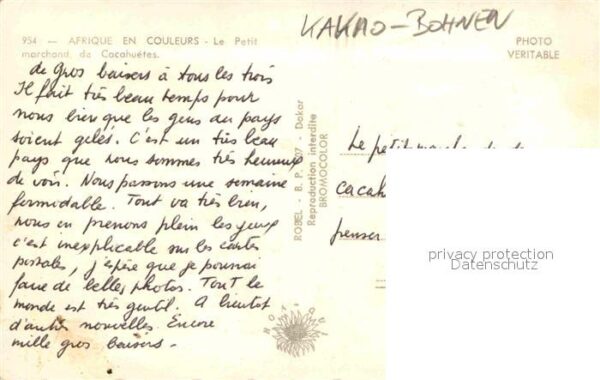 KAKAO-BOHNEN
954 — AFRIQUE EN COULEURS - Le Petit
marchand de Cacahuétes.
PHOTO
VERITABLE
de gros baisers à tous les trois
Il fait très beau temps pour
nous bien que les gens du pays
soient gelés. C'est un très beau
pays que nous sommes très heureux
de voir. Nous passons une semaine
formidable. Tout va très bien,
nous en prenons plein les yeux
c'est inexplicable sur les cartes
postales, j'espère que je pourrai
faire de belles photos. Tout le
monde est très gentil. A bientôt
d'autres nouvelles. Encore
mille gros baisers -
ROBEL - B. P. 07 - Dakar
Reproduction interdite
BROMOCOLOR
Le petit
cacah
penser
privacy protection
Datenschutz